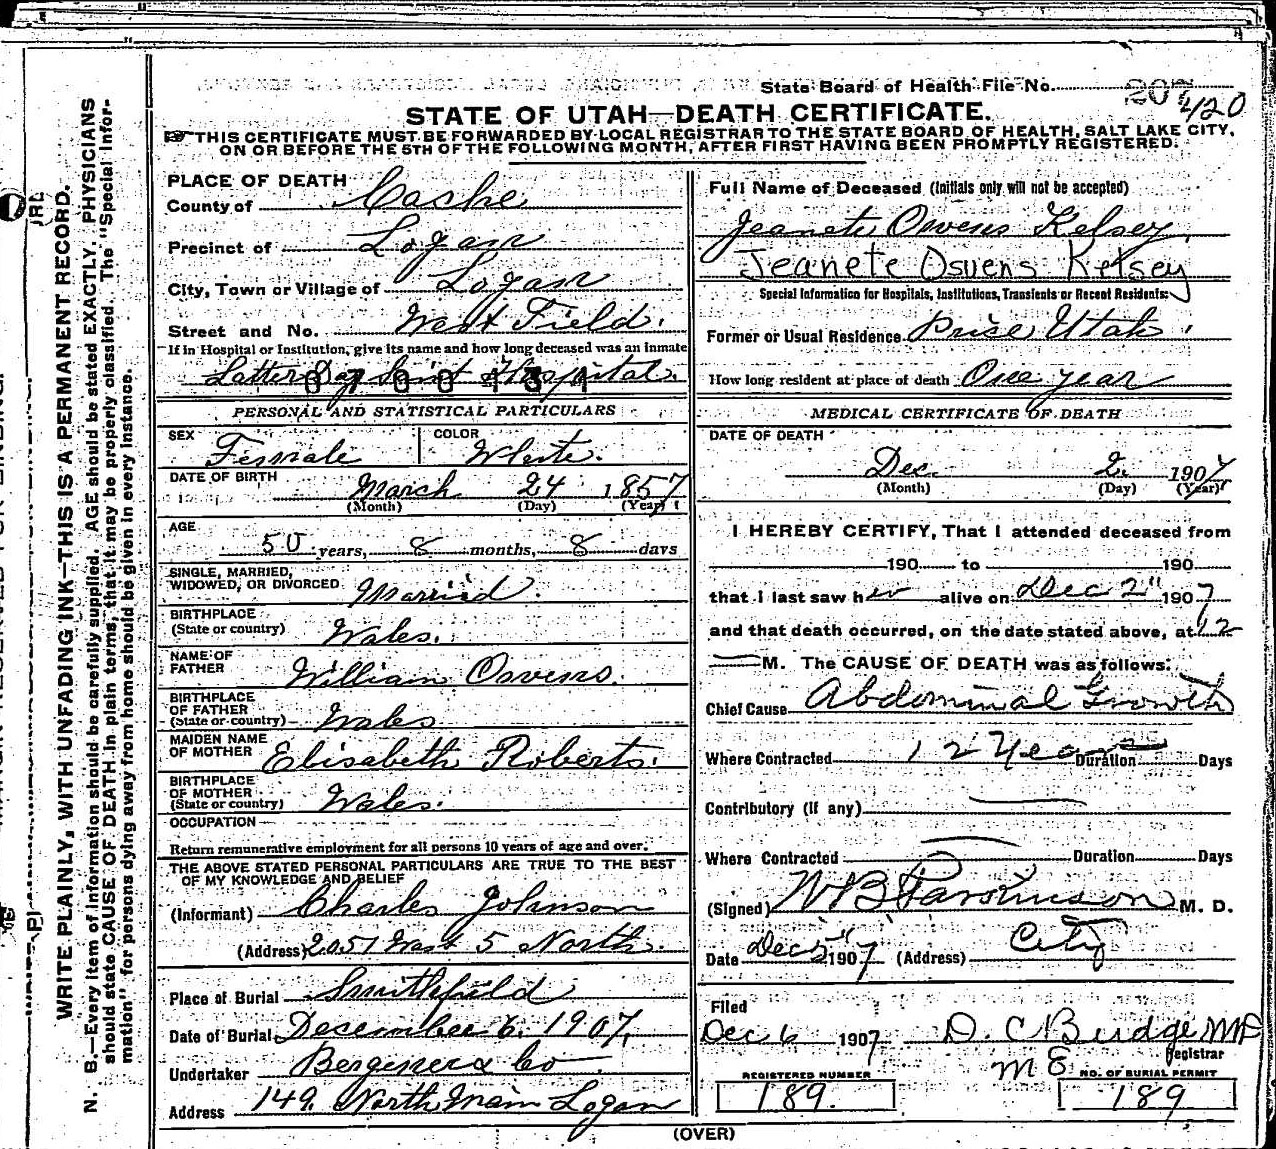 State Board of Health File No. 207 420
STATE OF UTAH—DEATH CERTIFICATE.
THIS CERTIFICATE MUST BE FORWARDED BY LOCAL REGISTRAR TO THE STATE BOARD OF HEALTH, SALT LAKE CITY,
ON OR BEFORE THE 5TH OF THE FOLLOWING MONTH, AFTER FIRST HAVING BEEN PROMPTLY REGISTERED.
WRITE PLAINLY, WITH UNFADING INK—THIS IS A PERMANENT RECORD.
N. B.—Every item of information should be carefully supplied. AGE should be stated EXACTLY. PHYSICIANS
should state CAUSE OF DEATH in plain terms, that it may be properly classified. The "Special Infor-
mation" for persons dying away from home should be given in every instance.
PLACE OF DEATH
County of Cache
Precinct of Logan
City, Town or Village of Logan
Street and No. West Field.
If in Hospital or Institution, give its name and how long deceased was an inmate
Latter Day Saint Hospital
0700131
PERSONAL AND STATISTICAL PARTICULARS
SEX Female COLOR White.
DATE OF BIRTH March 24 1857
(Month) (Day) (Year)
AGE
50 years, 8 months, 8 days
SINGLE, MARRIED,
WIDOWED, OR DIVORCED Married.
BIRTHPLACE
(State or country) Wales.
NAME OF
FATHER William Owens.
BIRTHPLACE
OF FATHER
(State or country) Wales
MAIDEN NAME
OF MOTHER Elisabeth Roberts.
BIRTHPLACE
OF MOTHER
(State or country) Wales.
OCCUPATION
Return remunerative employment for all persons 10 years of age and over.
THE ABOVE STATED PERSONAL PARTICULARS ARE TRUE TO THE BEST
OF MY KNOWLEDGE AND BELIEF
(Informant) Charles Johnson
(Address) 2051 West 5 North.
Place of Burial Smithfield
Date of Burial December 6, 1907,
Undertaker Bergeners Co
Address 149. North Main Logan
Full Name of Deceased (Initials only will not be accepted)
Jeanete Owens Kelsey,
Jeanete Osuens Kelsey
Special Information for Hospitals, Institutions, Transients or Recent Residents:
Former or Usual Residence Price Utah.
How long resident at place of death One year
MEDICAL CERTIFICATE OF DEATH
DATE OF DEATH
Dec. 2. 1907
(Month) (Day) (Year)
I HEREBY CERTIFY, That I attended deceased from
190 to 190
that I last saw her alive on Dec 2" 1907
and that death occurred, on the date stated above, at 12
M. The CAUSE OF DEATH was as follows:
Chief Cause Abdominal Growth
Where Contracted 12 Years Duration Days
Contributory (if any)
Where Contracted Duration Days
(Signed) WB Parkinson M. D.
Date Dec 5" 1907 (Address) City
Filed
Dec 6 1907 D. C Budge MD
Registrar
M E
REGISTERED NUMBER
189.
NO. OF BURIAL PERMIT
189
(OVER)